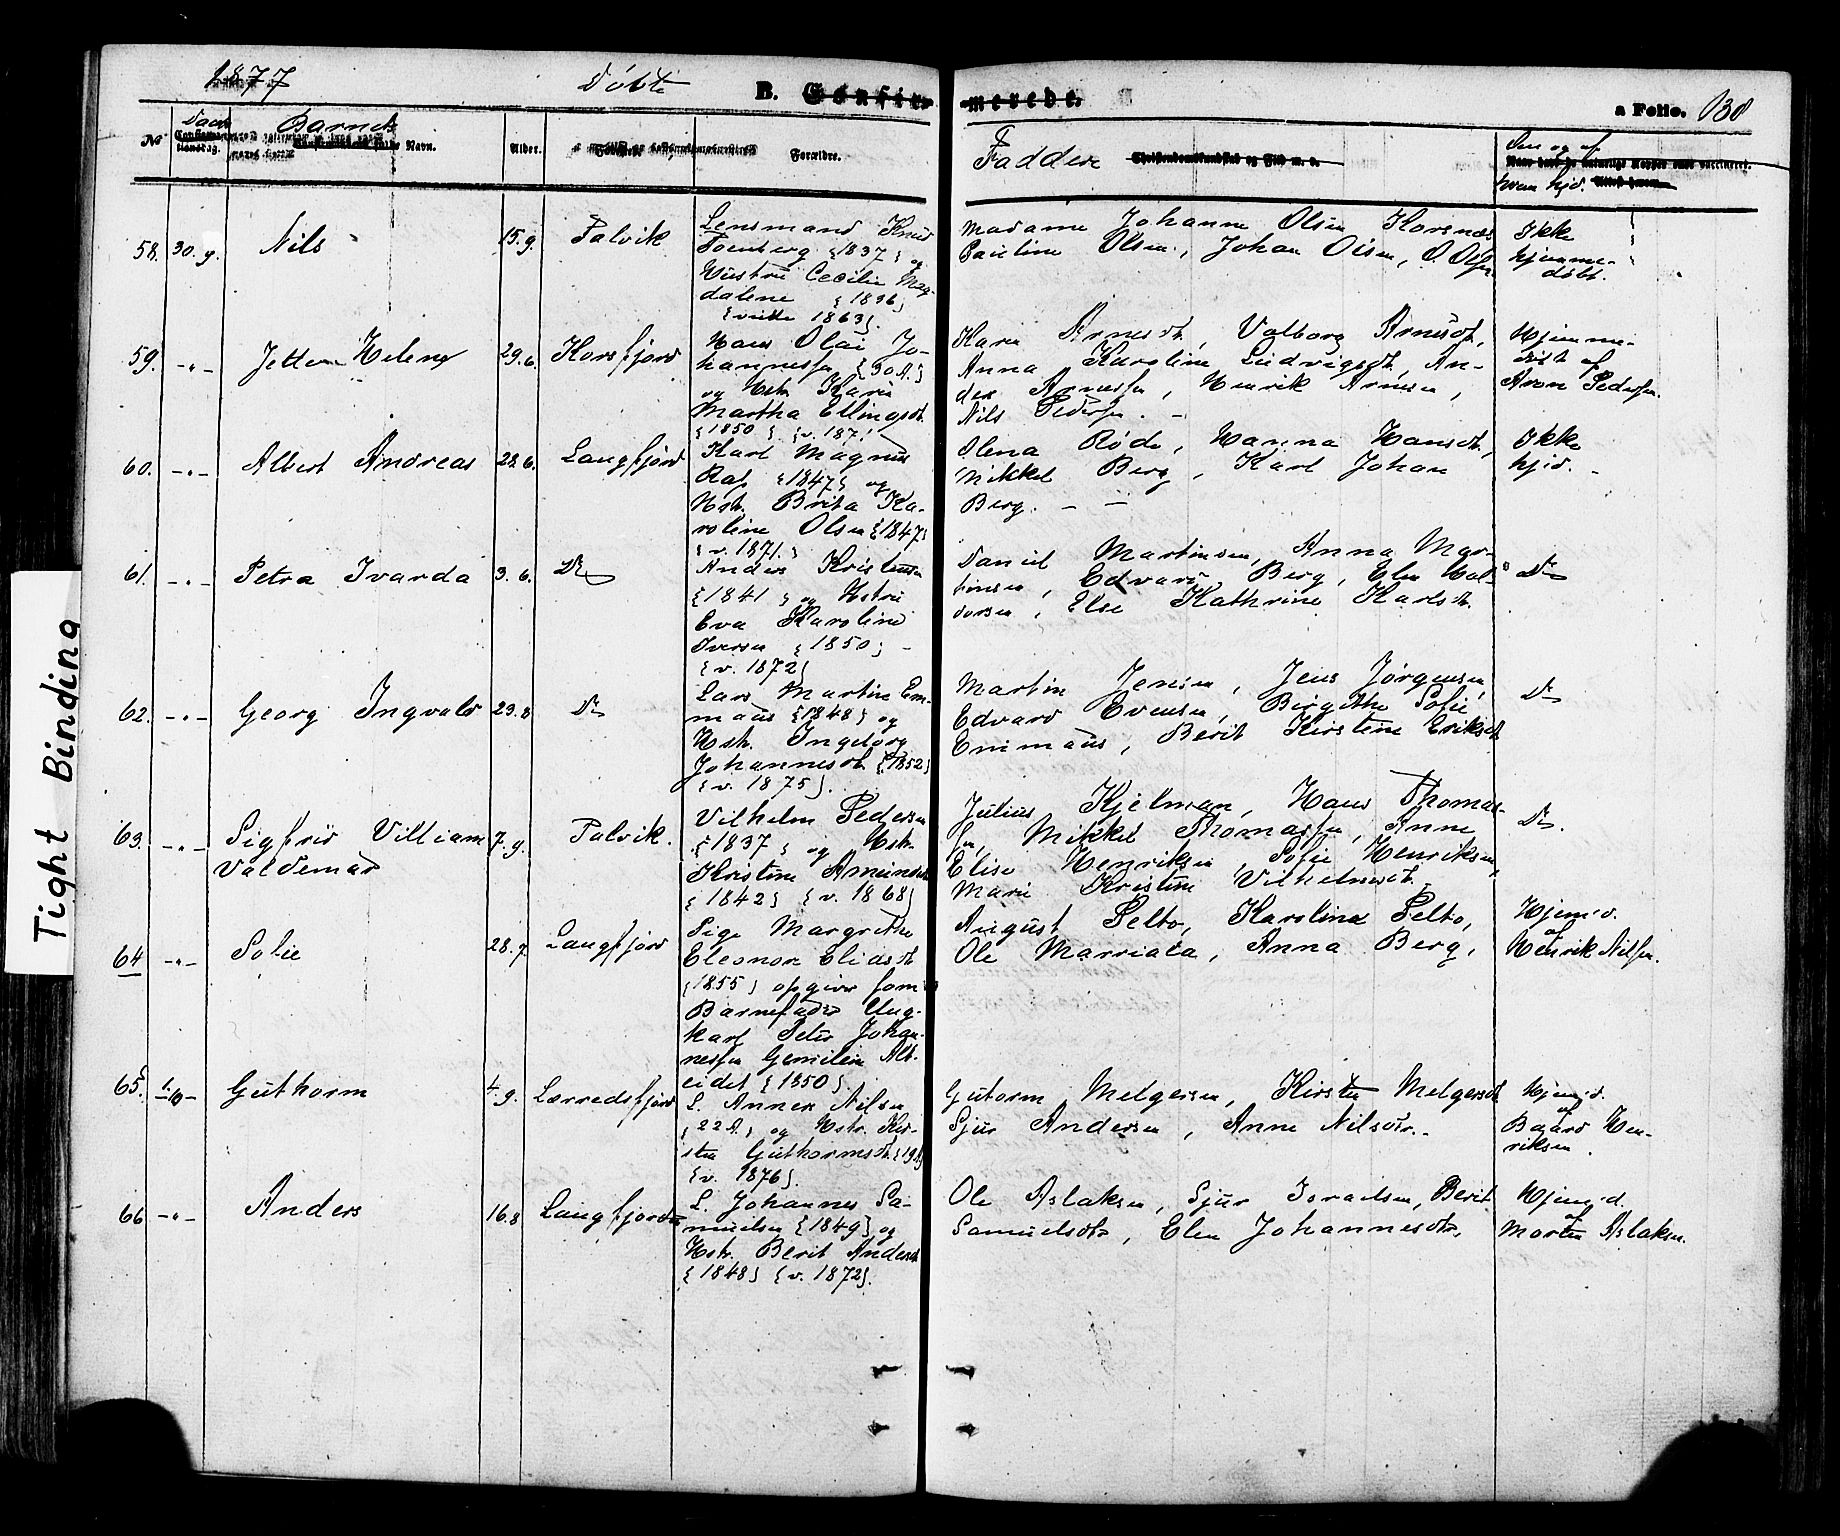 1877 Döbte B. Confir- merede. a Folio. 130
No Daab Barnets Navn. Alder. Forældre. Faddere Om og af
hvem hjd.
58. 30.9. Nils 15.9 Talvik
Lensmand Knud
{1837} og
Hustru Cecilie Mag-
dalene {1836}
{viede 1863}.
Madame Johanne Olsen Korsnæs
Pauline Olsen, Johan Olsen, O. Olsen
Ikke
hjemme-
döbt.
59. -"- Jette Helene 29.6. Korsfjord
Hans Olai Jo-
hannessen {30 A.}
og Hstr. Karen
Martha Ellingsdt.
{1850}. {v. 187.}
Karen Arnesdt, Valborg Arnesdt,
Anna Karoline Ludvigsdt, An-
ders Arnessen, Henrik Arnesen,
Nils Pedersen. -
Hjemme-
döbt af
Aron Pedersen.
60. -"- Albert Andreas 28.6. Langfjord
Karl Magnus
{1847} og
Hstr. Brita Ka-
roline Olsen {1847}
{v. 1871.}
Olena Röde, Hanna Hansdt,
Mikkel Berg, Karl Johan
Berg. - -
Ikke
hjd. -
61. -"- Petra Ivarda 3.6. Do
Anders Kristensen
{1841} og Hstru
Eva Karoline
Iversen {1850} -
{v. 1872}
Daniel Martinsen, Anna Mar-
tinsen, Edvard Berg, Elen Hal-
vorsen, Else Kathrine Karlsdt.
Do
62. -"- Georg Ingvald 23.8 Do
Lars Martin Em-
maus {1848} og
Hstr. Ingeborg
Johannesdt {1852}
{v. 1875}.
Martin Jensen, Jens Jørgensen
Edvard Evensen, Birgithe Sofie
Emmaus, Berit Kirstine Eriksdt
Do
63. -"- Sigfrid Villiam 7.9. Talvik.
Valdemar
Vilhelm Pedersen
{1837} og Hstr.
Kristine Amundsdt
{1842} {v. 1868}
Julius Kjelman, Hans Thomas-
sen, Mikkel Thomassen, Anne
Elise Henriksen, Sofie Henriksen,
Marie Kristine Vilhelmsdt,
Do.
64 -"- Sofie 28.7 Langfjord
Pige Margrethe
Eleonore Elidsdt
{1855} opgiver som
Barnefader Ung-
karl Peter Johan-
nessen Alt-
eidet {1850}.
August Pelto, Karoline Pelto,
Ole Marriata, Anna Berg,
Hjemd.
af
Henrik Nilsen.
65. 1.10- Guthorm 4.9. Lærredsfjord
L. Anders Nilsen
{22 A.} og Hstr. Kir-
sten Guthormsdt {19}
{v. 1876}.
Gutorm Melgersen, Kirsten Melgersdt
Sjur Andersen, Anne Nilsdtr.
Hjemd.
af
Baard Hen-
riksen.
66 -"- Anders 16.8 Langfjord
L. Johannes Sa-
muelsen {1849} og
Hstr. Berit Andersdt
{1848} {v. 1872}.
Ole Aslaksen, Sjur Israelsen, Berit
Samuelsdtr, Elen Johannesdtr.
Hjemd.
af
Morten Aslaksen.
Tight Binding